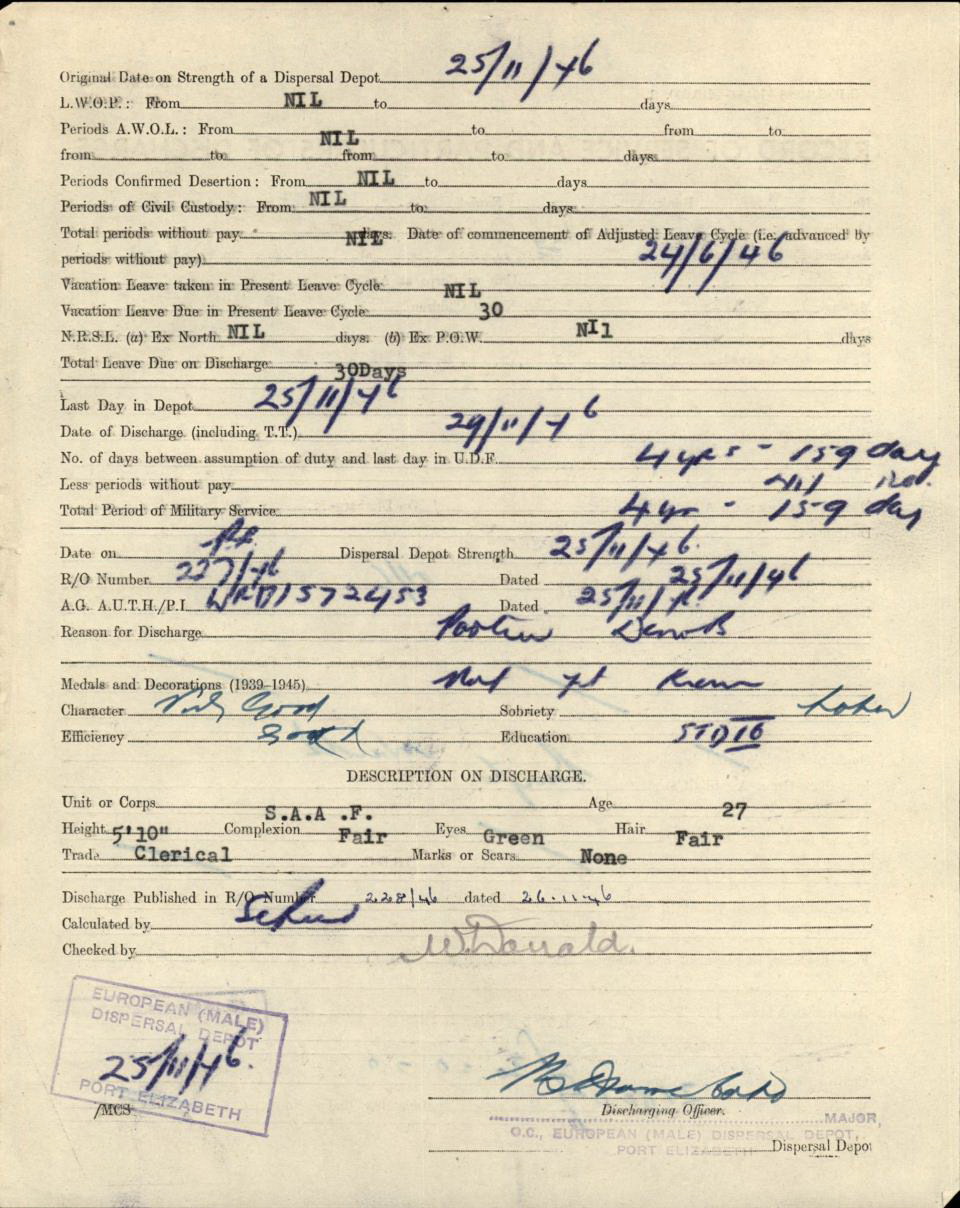 Original Date on Strength of a Dispersal Depot 25/11/46
L.W.O.P.: From NIL to days
Periods A.W.O.L.: From NIL to from to
from to from to days
Periods Confirmed Desertion: From NIL to days
Periods of Civil Custody: From NIL to days
Total periods without pay NIL days. Date of commencement of Adjusted Leave Cycle (i.e. advanced by
periods without pay) 24/6/46
Vacation Leave taken in Present Leave Cycle NIL
Vacation Leave Due in Present Leave Cycle 30
N.R.S.L. (a) Ex North NIL days. (b) Ex P.O.W. NIl days
Total Leave Due on Discharge 30Days
Last Day in Depot 25/11/46
Date of Discharge (including T.T.) 29/11/46
No. of days between assumption of duty and last day in U.D.F. 4 yrs - 159 day
Less periods without pay Nil
Total Period of Military Service 4 yr - 159 day
Date on P.E. Dispersal Depot Strength 25/11/46
R/O Number 227/46 Dated 25/11/46
A.G. A.U.T.H./P.I. Dated 25/11/46
Reason for Discharge
Medals and Decorations (1939-1945) Not yt Known
Character Very Good Sobriety Sober
Efficiency Good Education STD
DESCRIPTION ON DISCHARGE.
Unit or Corps S.A.A .F. Age 27
Height 5'10" Complexion Fair Eyes Green Hair Fair
Trade Clerical Marks or Scars None
Discharge Published in R/O Number 228/46 dated 26-11-46
Calculated by
Checked by W. Donald.
EUROPEAN (MALE)
DISPERSAL DEPOT
25/11/46.
PORT ELIZABETH
/MCS
Discharging Officer.
MAJOR,
O.C., EUROPEAN (MALE) DISPERSAL DEPOT,
PORT ELIZABETH
Dispersal Depot